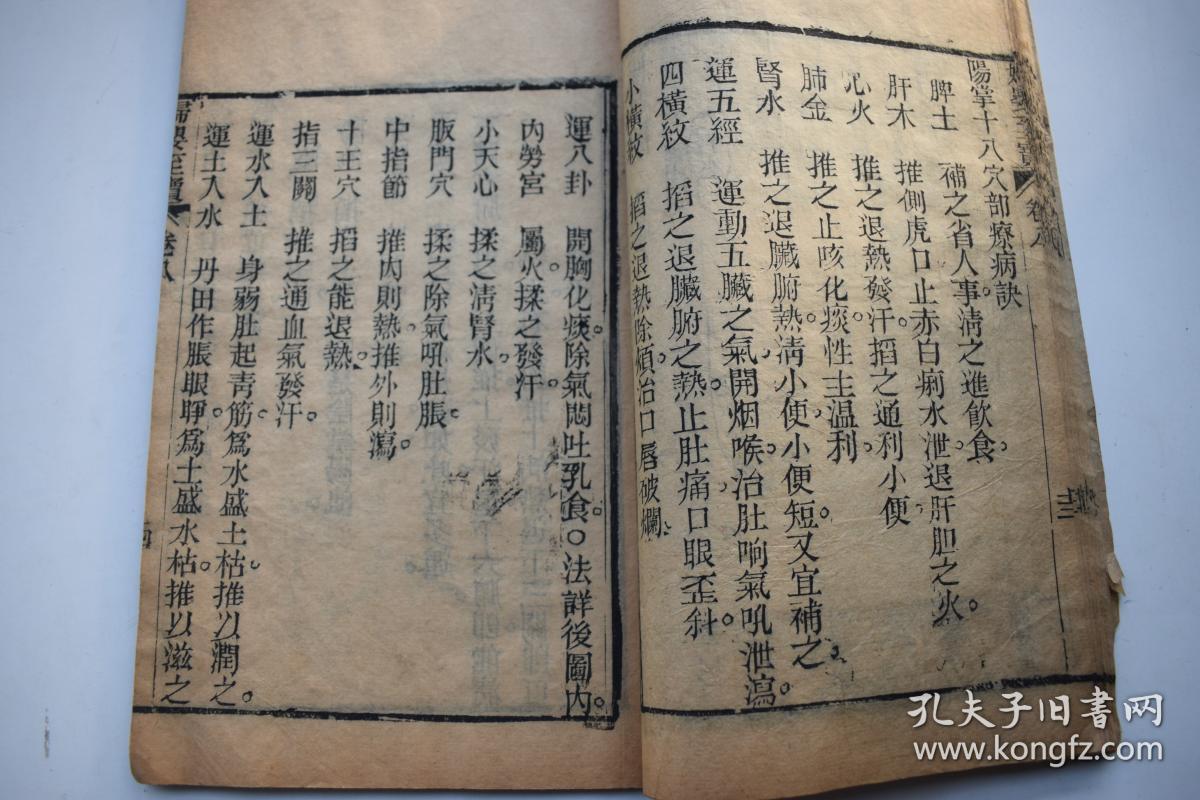 陽掌十八穴部療病訣
脾土 補之省人事。清之進飲食。
肝木 推側虎口止赤白痢水泄退肝胆之火。
心火 推之退熱發汗。掐之通利小便
肺金 推之止咳化痰。性主温利。
腎水 推之退臟腑熱。清小便。小便短又宜補之。
運五經 運動五臟之氣開烟喉。治肚响氣吼泄瀉。
四橫紋 掐之退臟腑之熱。止肚痛口眼歪斜。
小橫紋 掐之退熱除煩。治口唇破爛。
十三
運八卦 開胸化痰除氣悶吐乳食。○法詳後圖內。
內勞宮 屬火。揉之發汗。
小天心 揉之清腎水。
版門穴 揉之除氣吼肚脹。
中指節 推內則熱。推外則瀉。
十王穴 掐之能退熱。
指三關 推之通血氣發汗。
運水入土 身弱肚起青筋。爲水盛土枯。推以潤之。
運土入水 丹田作脹眼睜。爲土盛水枯。推以滋之
婦嬰至寶 卷八 十四
孔夫子旧书网
www.kongfz.com